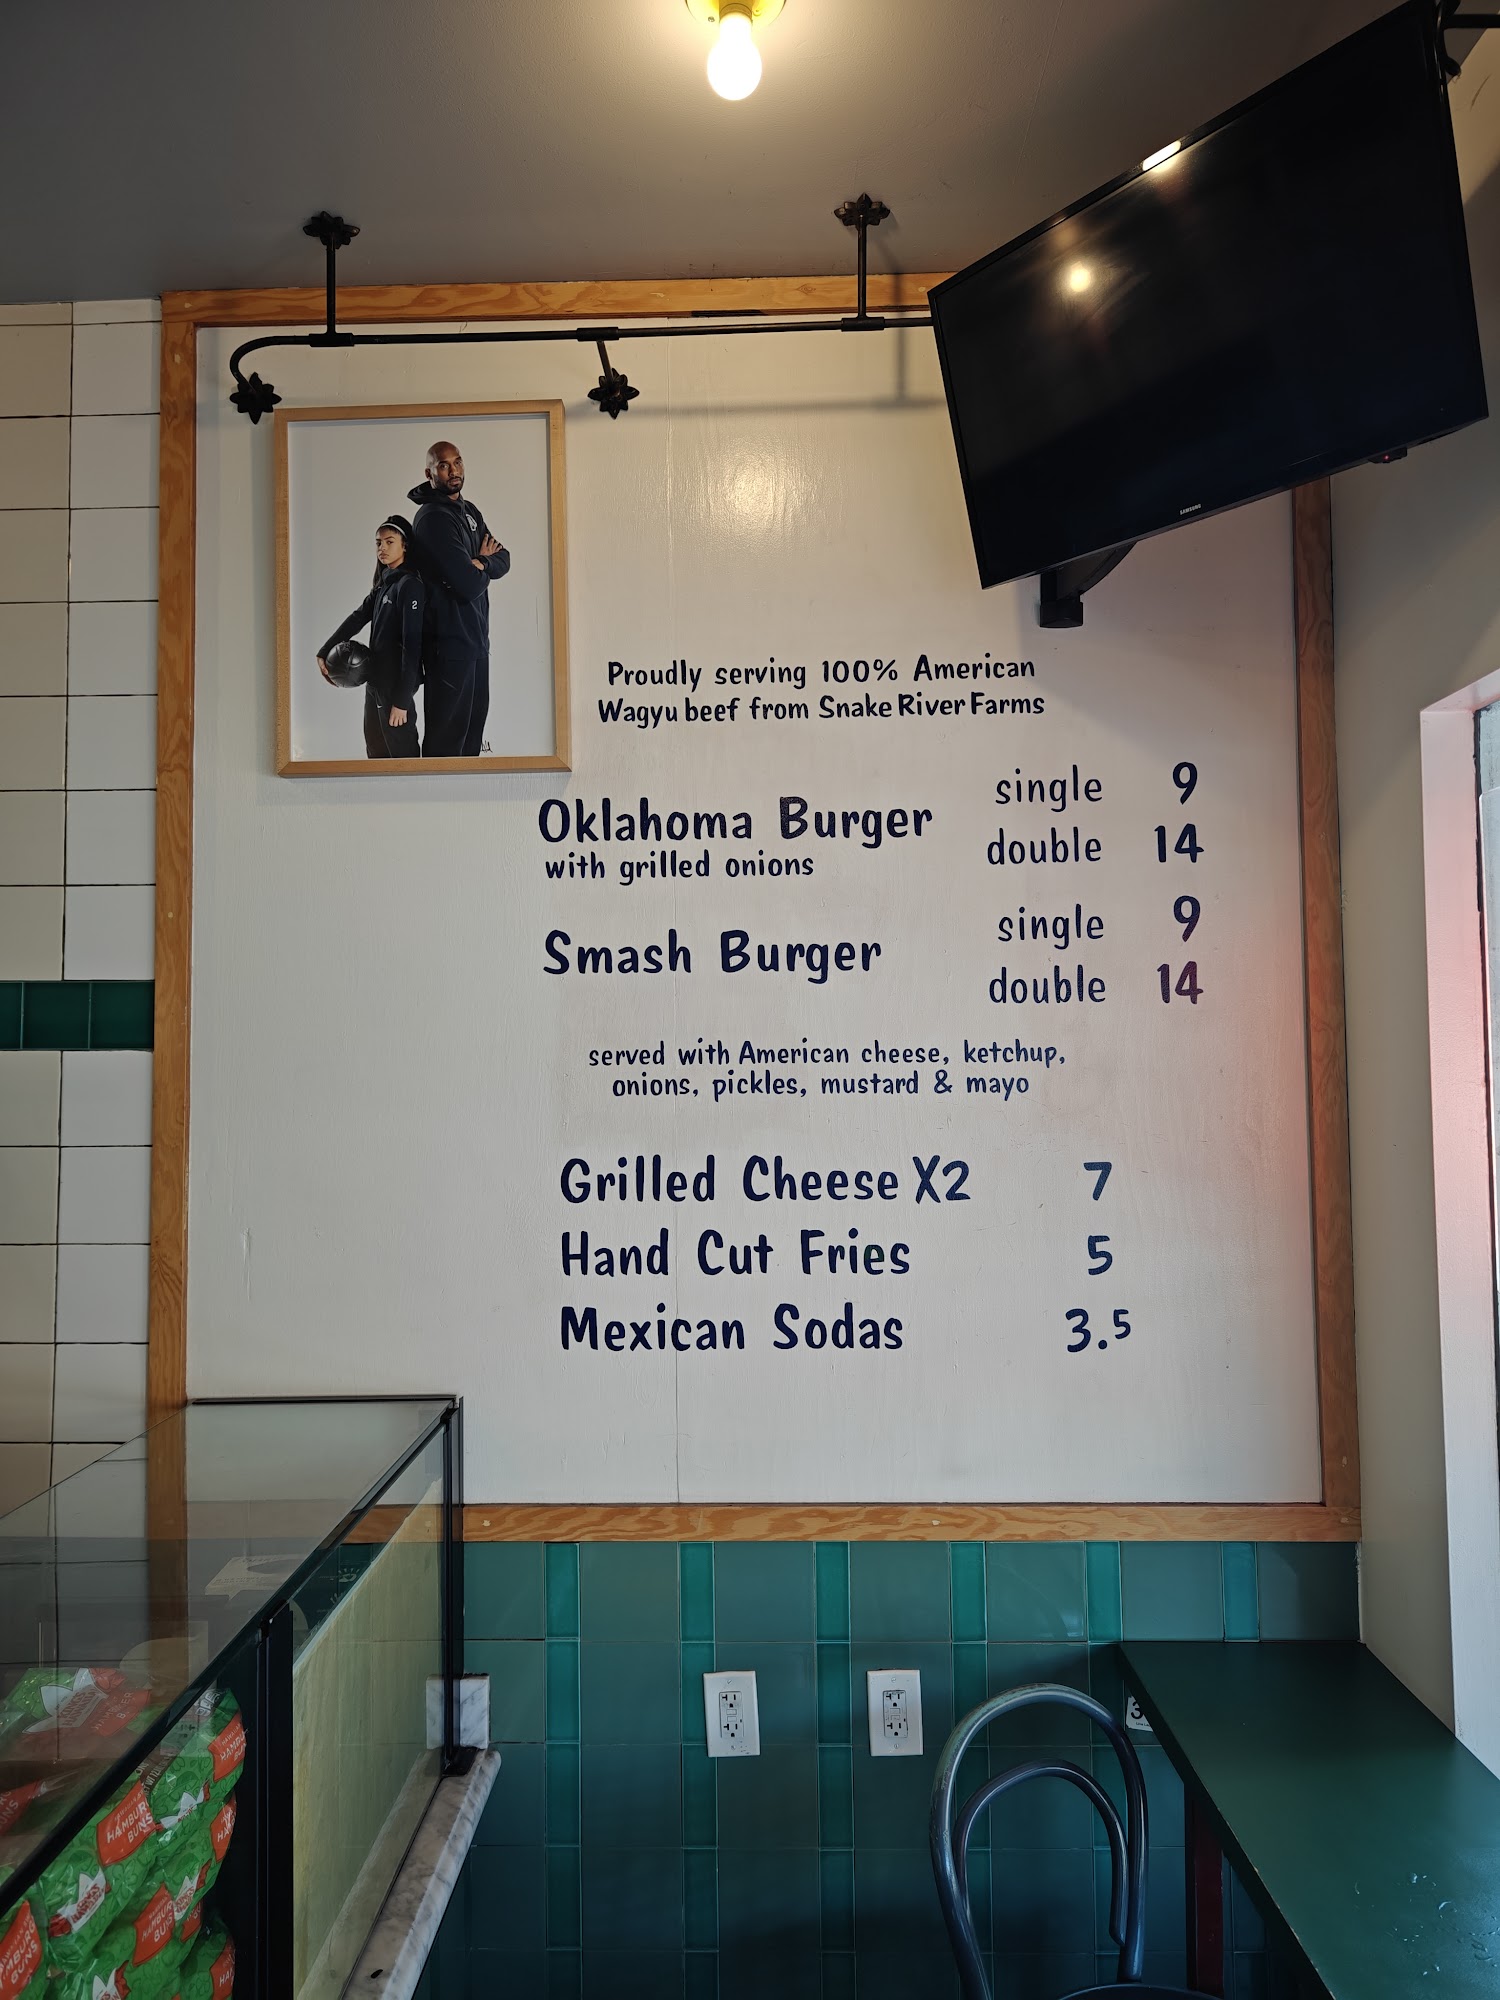 SAMSUNG
2
Proudly serving 100% American
Wagyu beef from Snake River Farms
Oklahoma Burger
with grilled onions
single 9
double 14
Smash Burger
single 9
double 14
served with American cheese, ketchup,
onions, pickles, mustard & mayo
Grilled Cheese X2 7
Hand Cut Fries 5
Mexican Sodas 3.5
HAMBURGER
BUNS